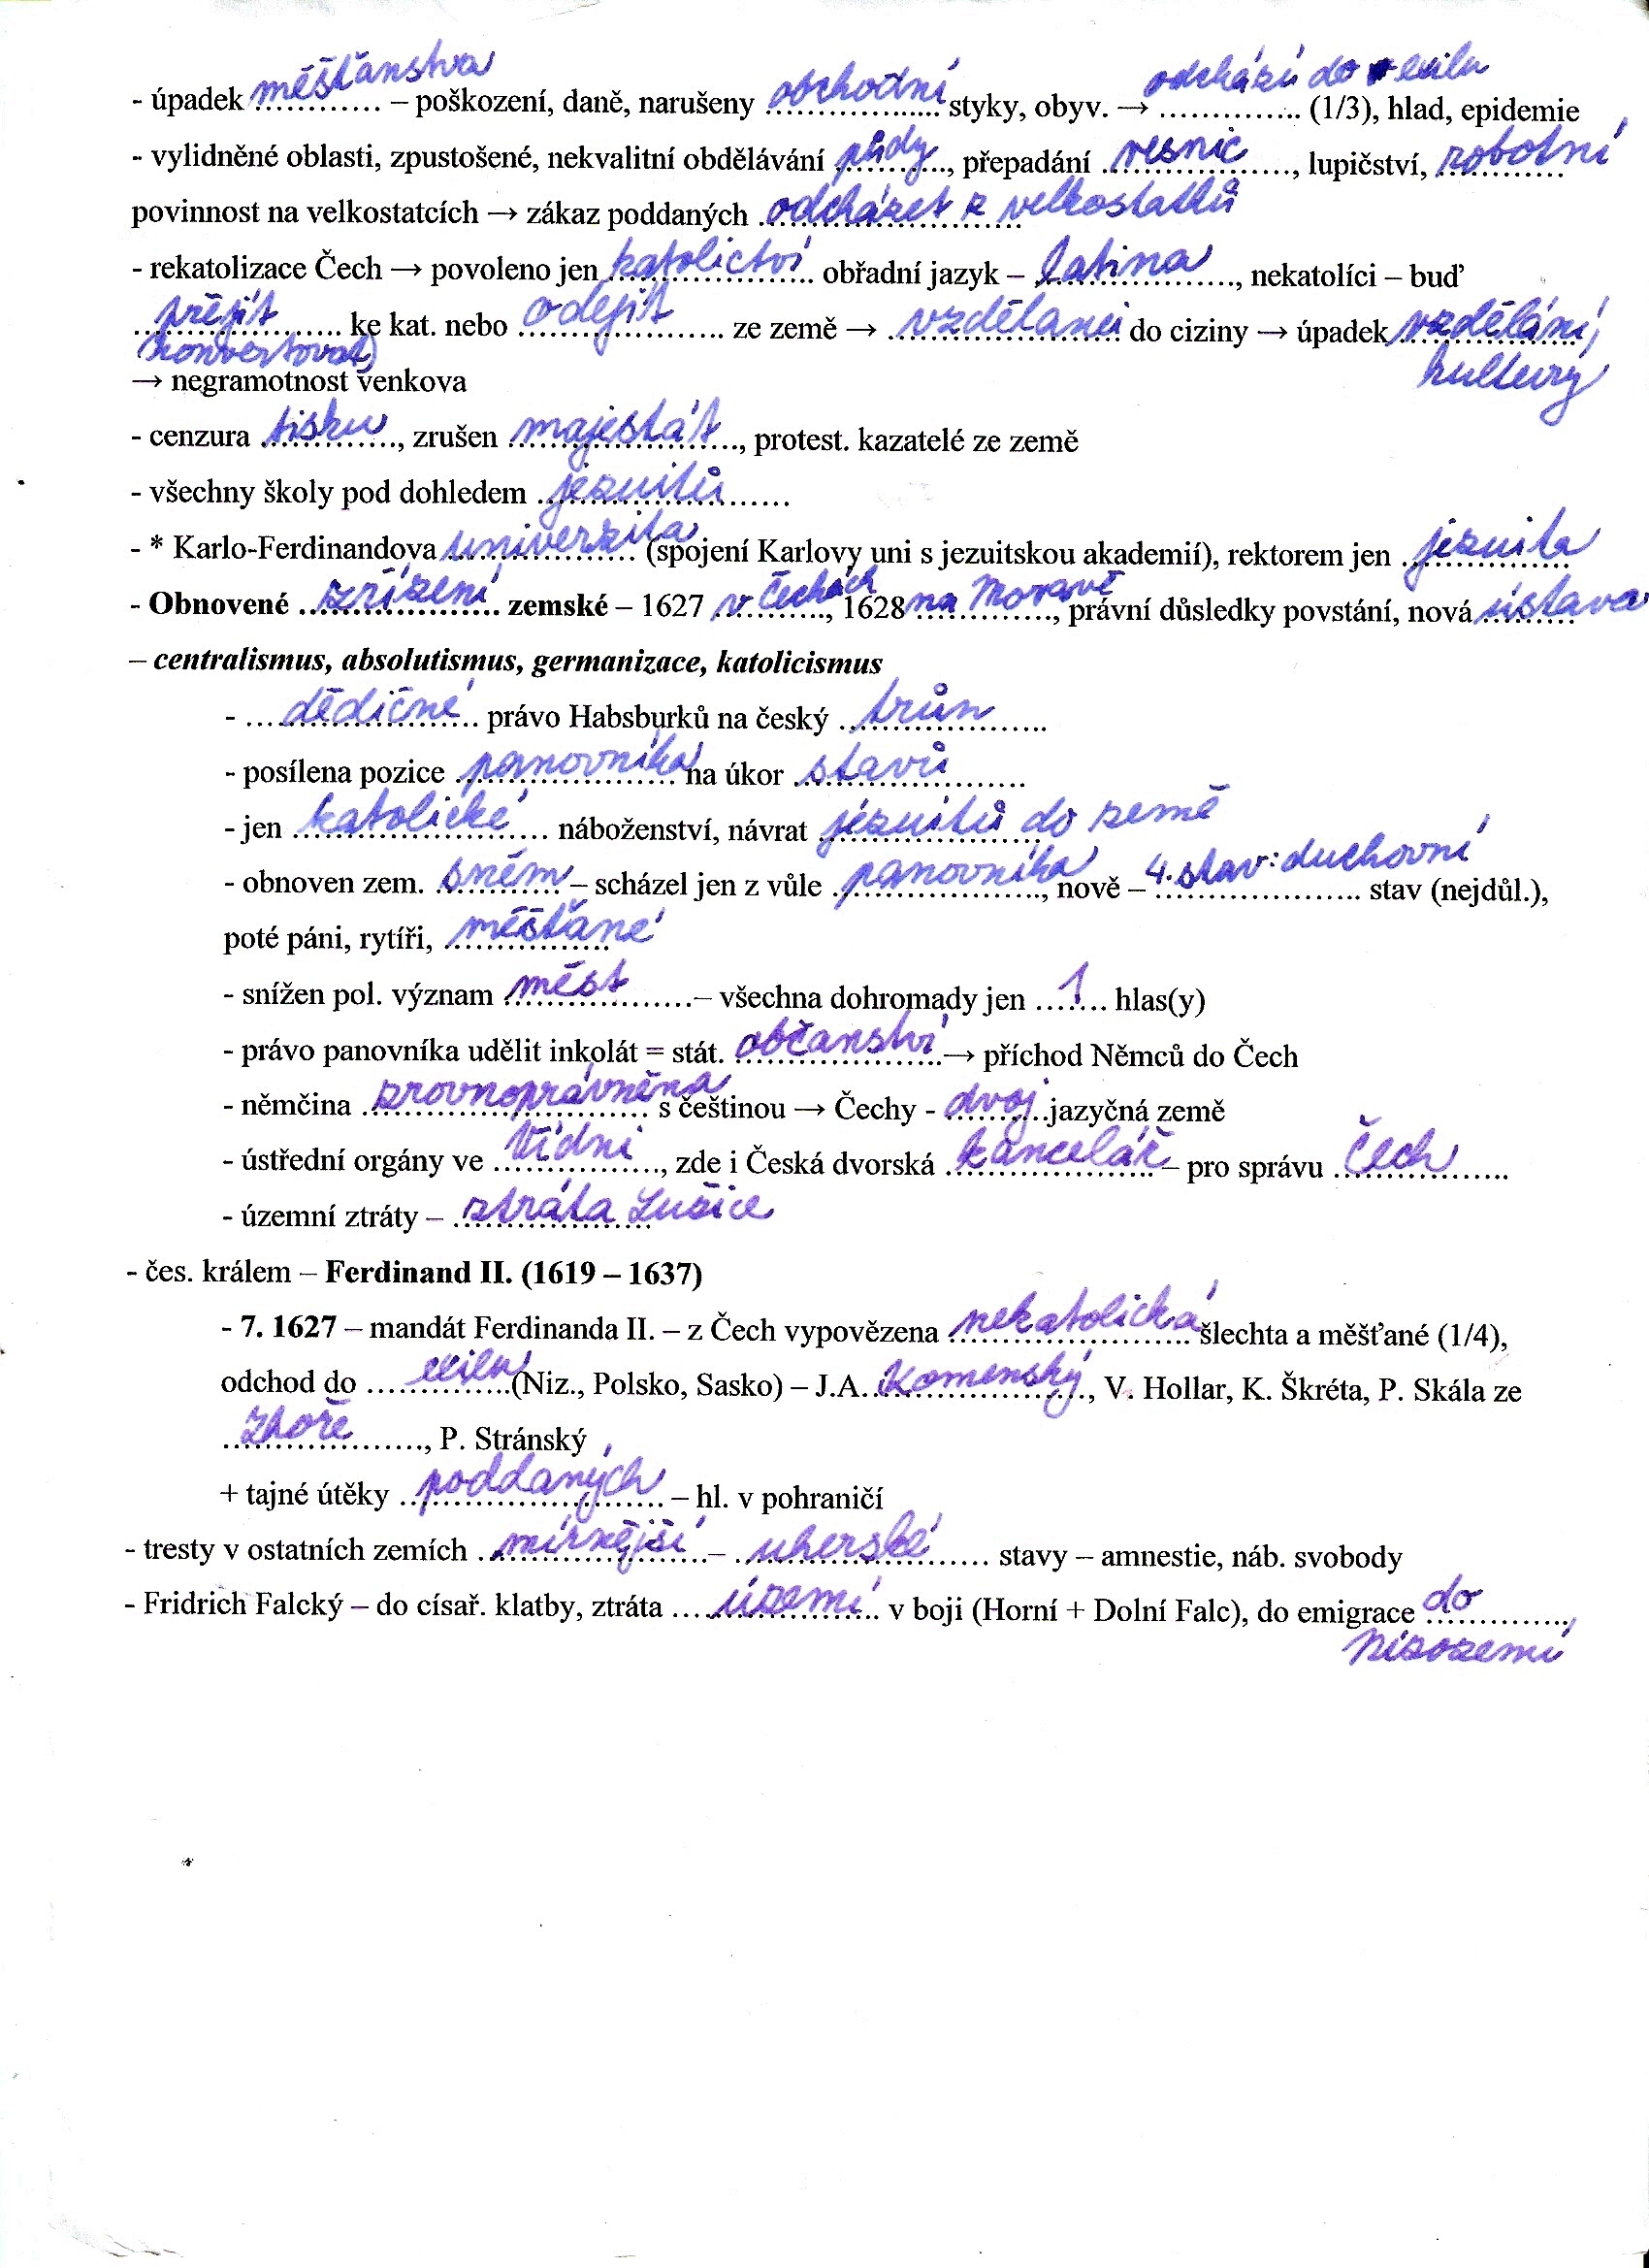 - úpadek měšťanstva – poškození, daně, narušeny obchodní styky, obyv. → odchází do exilu (1/3), hlad, epidemie
- vylidněné oblasti, zpustošené, nekvalitní obdělávání půdy, přepadání vesnic, lupičství, robotní
povinnost na velkostatcích → zákaz poddaných odcházet z velkostatků
- rekatolizace Čech → povoleno jen katolictví obřadní jazyk – latina, nekatolíci – buď
přejít ke kat. nebo odejít ze země → vzdělanci do ciziny → úpadek vzdělání,
(konvertovat) kultury
→ negramotnost venkova
- cenzura tisku, zrušen majestát, protest. kazatelé ze země
- všechny školy pod dohledem jezuitů
- * Karlo-Ferdinandova univerzita (spojení Karlovy uni s jezuitskou akademií), rektorem jen jezuita
- Obnovené zřízení zemské – 1627 v Čechách, 1628 na Moravě, právní důsledky povstání, nová ústava
– centralismus, absolutismus, germanizace, katolicismus
- dědičné právo Habsburků na český trůn
- posílena pozice panovníka na úkor stavů
- jen katolické náboženství, návrat jezuitů do země
- obnoven zem. sněm – scházel jen z vůle panovníka, nově – 4. stav: duchovní stav (nejdůl.),
poté páni, rytíři, měšťané
- snížen pol. význam měst – všechna dohromady jen 1 hlas(y)
- právo panovníka udělit inkolát = stát. občanství → příchod Němců do Čech
- němčina zrovnoprávněna s češtinou → Čechy - dvoj jazyčná země
- ústřední orgány ve Vídni, zde i Česká dvorská kancelář – pro správu Čech
- územní ztráty – ztráta Lužice
- čes. králem – Ferdinand II. (1619 – 1637)
- 7. 1627 – mandát Ferdinanda II. – z Čech vypovězena nekatolická šlechta a měšťané (1/4),
odchod do exilu (Niz., Polsko, Sasko) – J.A. Komenský, V. Hollar, K. Škréta, P. Skála ze
Zhoře, P. Stránský
+ tajné útěky poddaných – hl. v pohraničí
- tresty v ostatních zemích mírnější – uherské stavy – amnestie, náb. svobody
- Fridrich Falcký – do císař. klatby, ztráta území v boji (Horní + Dolní Falc), do emigrace do
Nizozemí